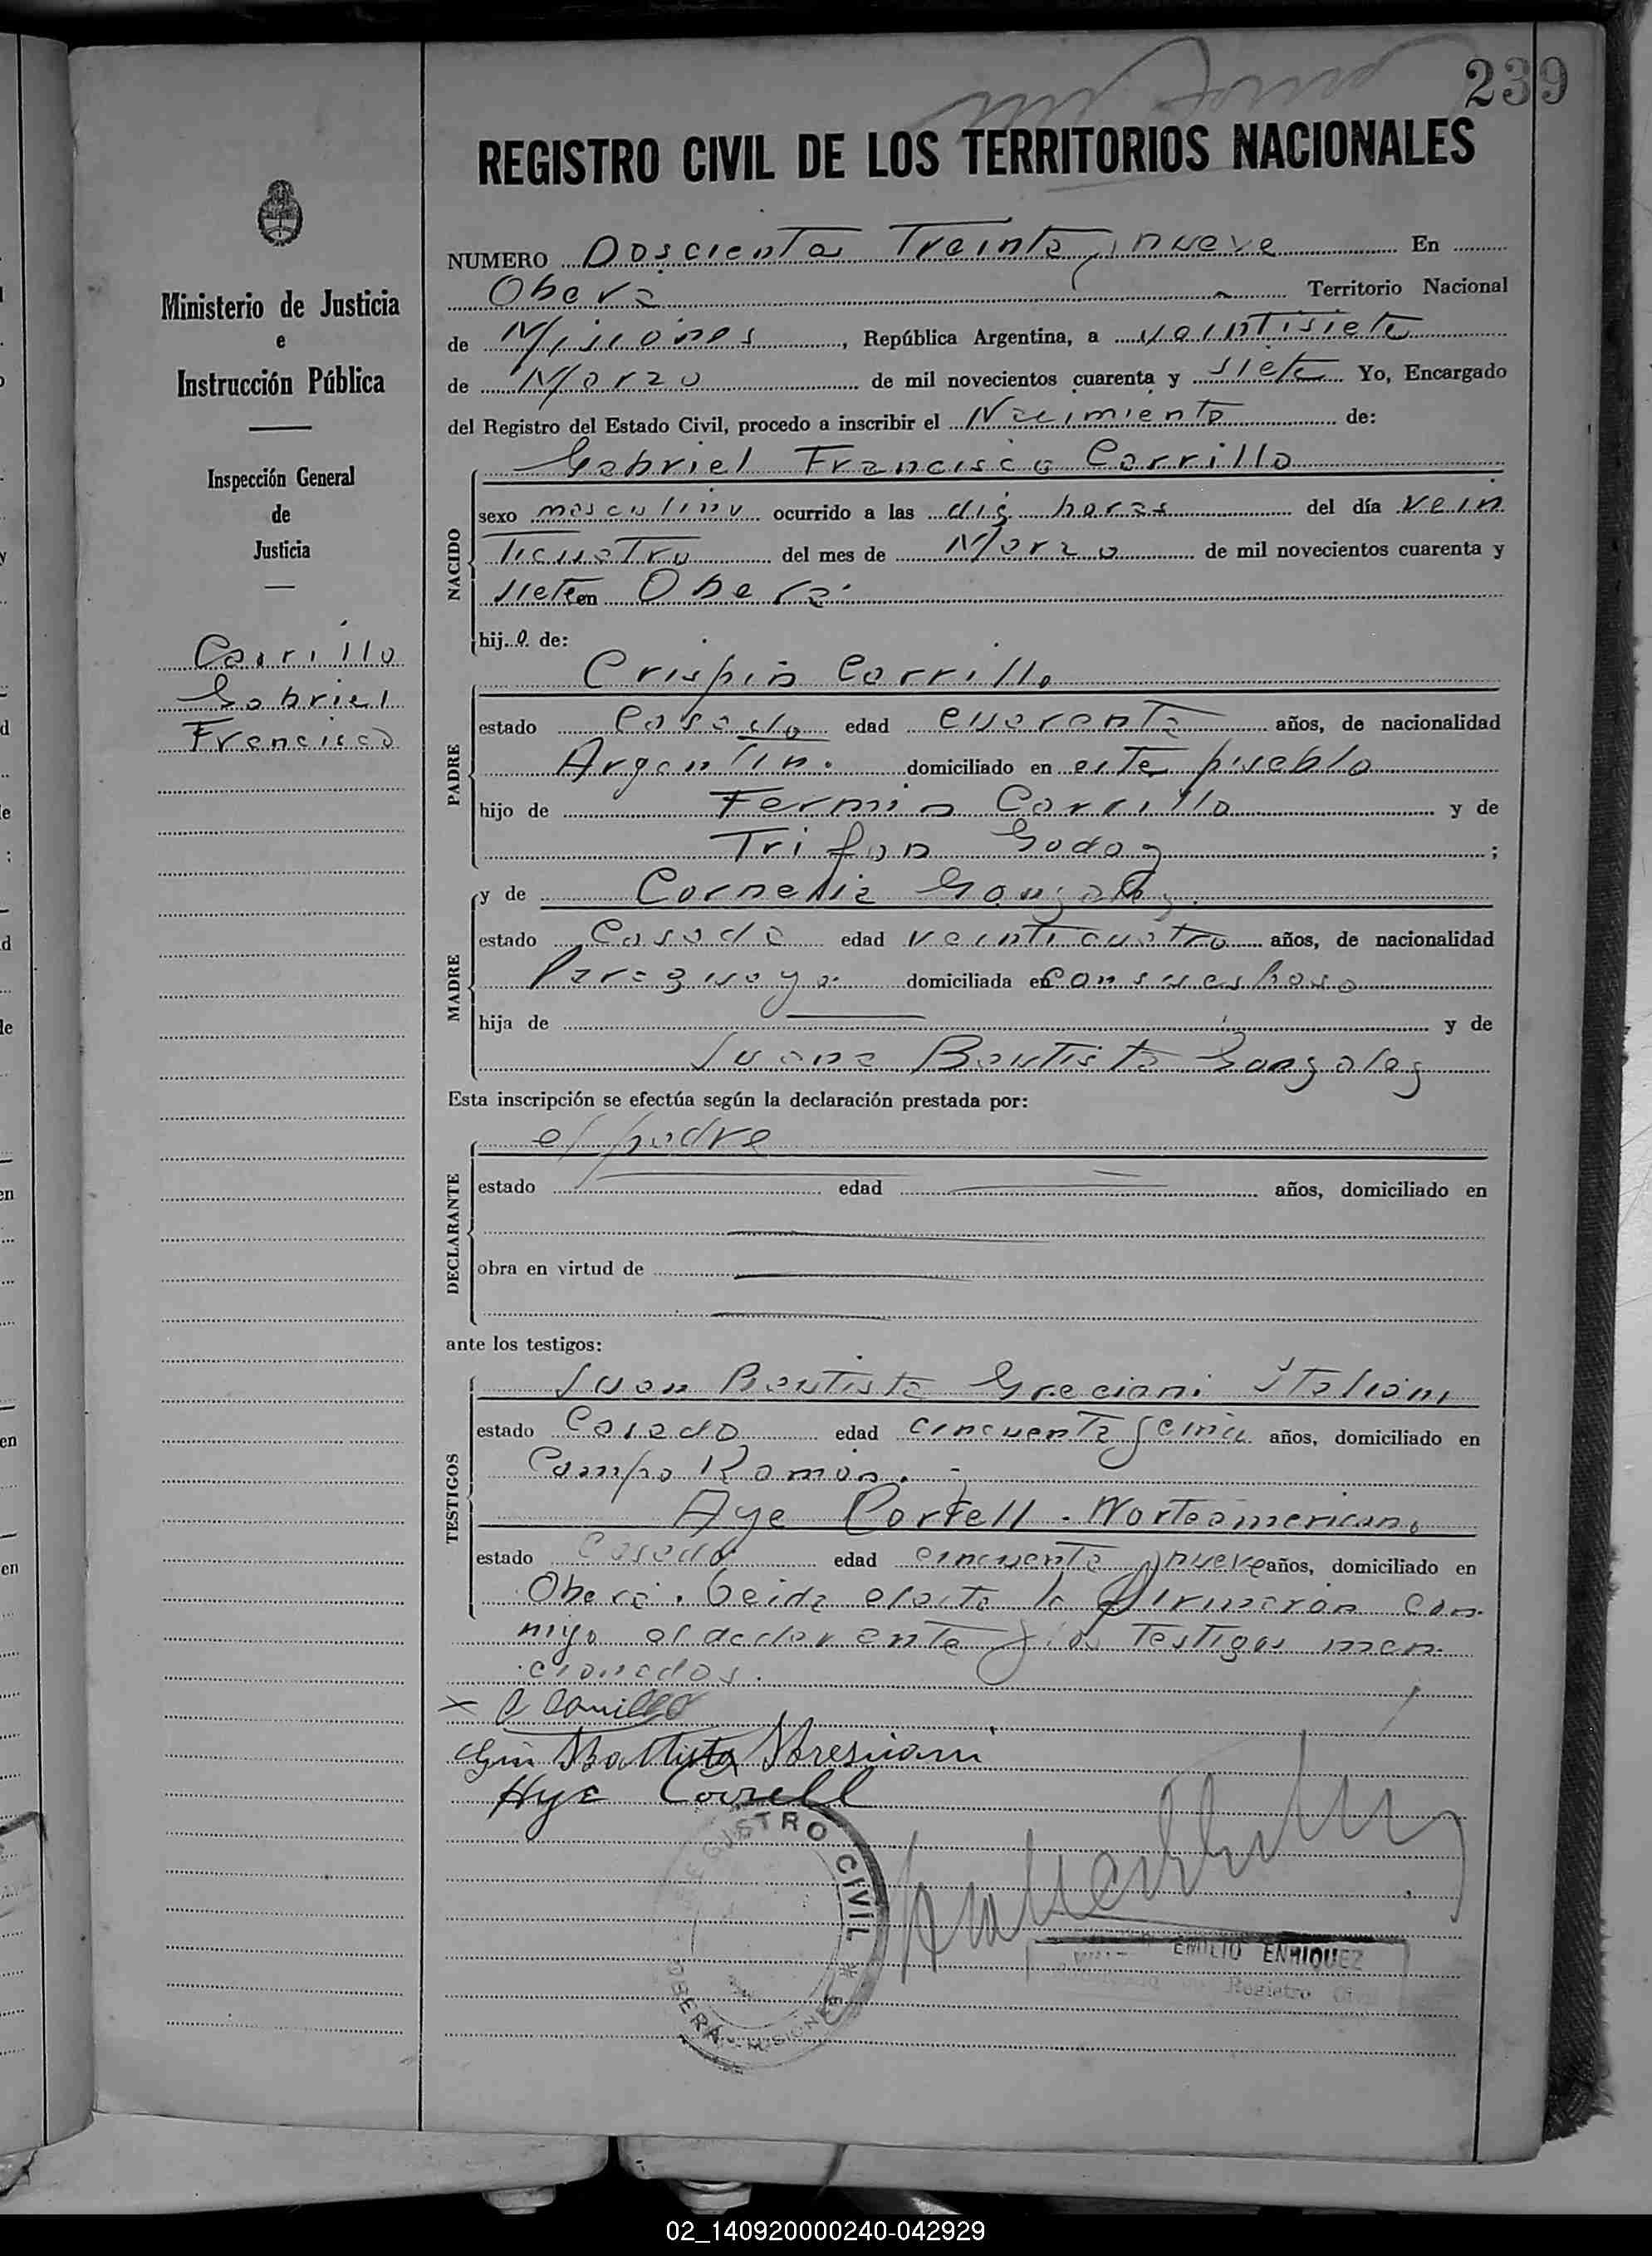 239
REGISTRO CIVIL DE LOS TERRITORIOS NACIONALES
NUMERO Doscientos Treinta y nueve En
Obera Territorio Nacional
de Misiones, República Argentina, a veintisiete
de Marzo de mil novecientos cuarenta y siete Yo, Encargado
del Registro del Estado Civil, procedo a inscribir el Nacimiento de:
Gabriel Francisco Carrillo
NACIDO
sexo masculino ocurrido a las diez horas del día vein
ticuatro del mes de Marzo de mil novecientos cuarenta y
siete en Oberá.
hijo de:
PADRE
Crispin Carrillo
estado Casado edad cuarenta años, de nacionalidad
Argentino domiciliado en este pueblo
hijo de Fermin Carrillo y de
Trifon Godoy;
MADRE
y de Cornelia Gonzalez
estado Casada edad veinticuatro años, de nacionalidad
Paraguaya domiciliada en con su esposo
hija de y de
Juana Bautista Gonzalez
Esta inscripción se efectúa según la declaración prestada por:
DECLARANTE
el padre
estado edad años, domiciliado en
obra en virtud de
ante los testigos:
TESTIGOS
Juan Bautista Greciani Italiano
estado Casado edad cincuenta y cinco años, domiciliado en
Campo Ramon.
Aye Correll. Norteamericano
estado Casado edad cincuenta y nueve años, domiciliado en
Oberá. Leida el acta la firmaron con-
migo el declarante y los Testigos men-
cionados.
x C Carrillo
Battista Bresciani
Aye Correll
REGISTRO CIVIL
OBERÁ MISIONES
EMILIO ENRIQUEZ
Registro Civil
Ministerio de Justicia
e
Instrucción Pública
Inspección General
de
Justicia
Carrillo
Gabriel
Francisco
02_140920000240-042929